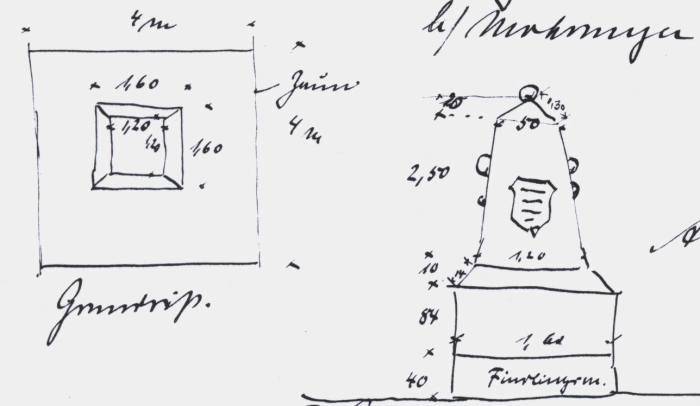 4 m
b/
Zaun
1,60
1,20
1,20
1,60
4 m
Grundriß.
20
1,30
50
2,50
1,20
10
84
1,60
40
Findlingsm.